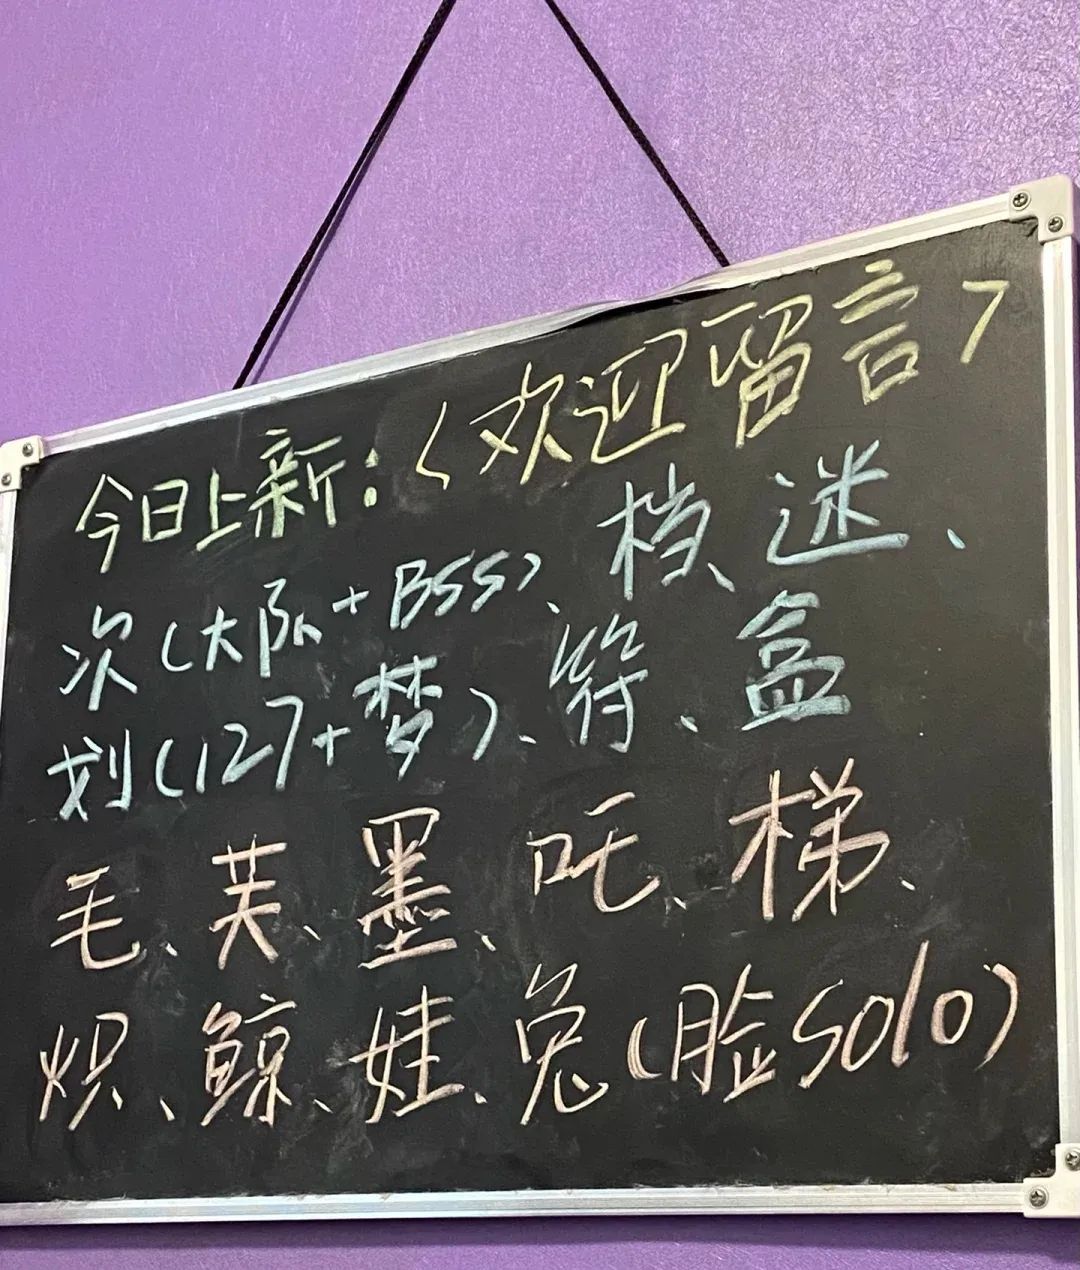 今日上新:〈欢迎留言〉
次(大队+BSS)、档、迷、
划(127+梦)、符、盒
毛、芙、墨、吒、梯、
炽、鲸、娃、兔(脸solo)